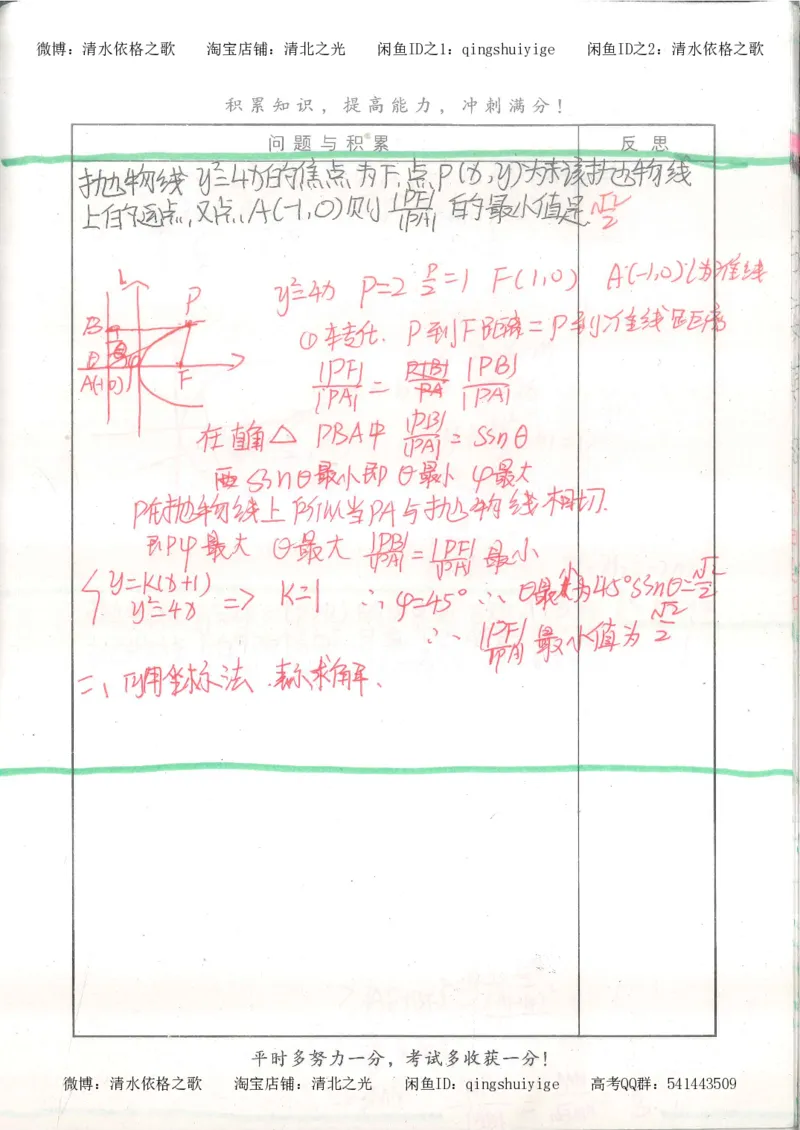 微博：清水依格之歌 淘宝店铺：清北之光 闲鱼ID之1：qingshuiyige 闲鱼ID之2：清水依格之歌
积累知识，提高能力，冲刺满分！
问题与积累 反思
抛物线 y²=4x的焦点为F,点P(x,y)为该抛物线
上的动点,又点A(-1,0)则 |PF|/|PA| 的最小值是 √2/2
y²=4x P=2 P/2=1 F(1,0) A(-1,0) L为准线
①转化. P到F距离=P到准线距离
|PF|/|PA| = |PB|/|PA|
L
B
P
θ
A(-1,0)
F
在直角△ PBA中 |PB|/|PA| = sinθ
要sinθ最小即 θ最小 φ最大
P在抛物线上 所以当PA与抛物线相切.
即φ最大 θ最大 |PB|/|PA| = |PF|/|PA| 最小
{ y=K(x+1) y²=4x => K=1 ∴φ=45° ∴θ最小为45° sinθ=√2/2
∴ |PF|/|PA| 最小值为 √2/2
二、利用坐标法.表示求解.
平时多努力一分，考试多收获一分！
微博：清水依格之歌 淘宝店铺：清北之光 闲鱼ID：qingshuiyige 高考QQ群：541443509